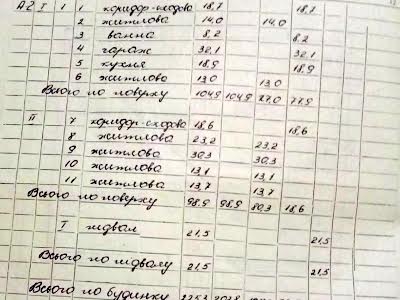 А2 I 1 1 коридор-сходова 18,7 18,7
2 житлова 14,0 14,0
3 ванна 8,2 8,2
4 гараж 32,1 32,1
5 кухня 18,9 18,9
6 житлова 13,0 13,0
Всього по поверху 104,9 104,9 27,0 77,9
II 7 коридор-сходова 18,6 18,6
8 житлова 23,2 23,2
9 житлова 30,3 30,3
10 житлова 13,1 13,1
11 житлова 13,7 13,7
Всього по поверху 98,9 98,9 80,3 18,6
I підвал 21,5 21,5
Всього по підвалу 21,5 21,5
Всього по будинку